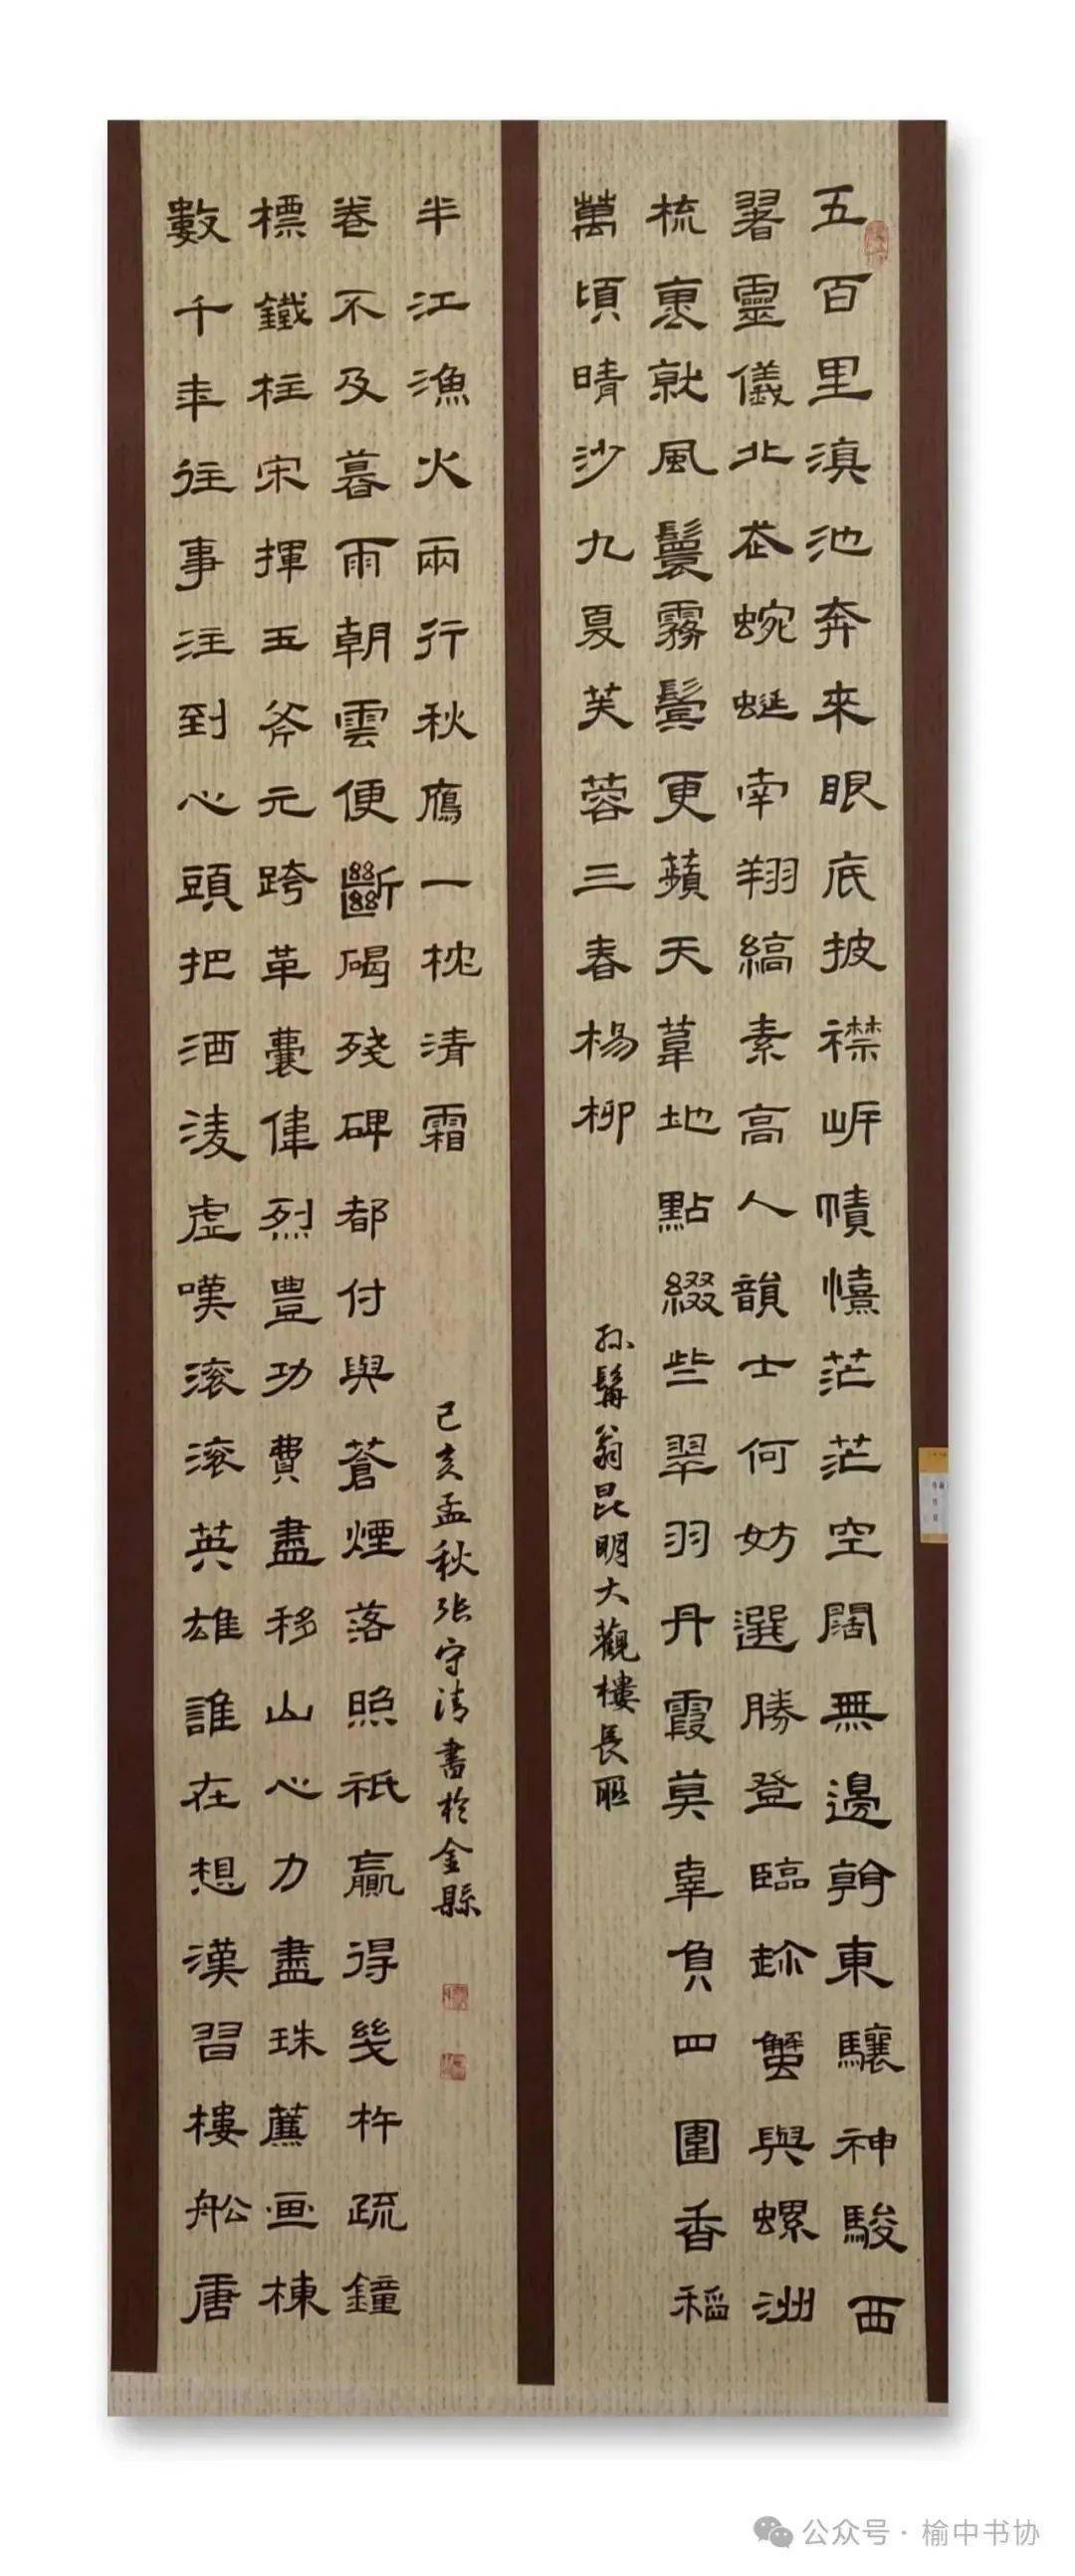 五百里滇池奔來眼底披襟岸幘憘茫茫空闊無邊看東驤神駿西
翥靈儀北走蜿蜒南翔縞素高人韻士何妨選勝登臨趂蟹與螺洲
梳裹就風鬟霧鬢更蘋天葦地點綴些翠羽丹霞莫辜負四圍香稻
萬頃晴沙九夏芙蓉三春楊柳
孫髯翁昆明大觀樓長聯
數千年往事注到心頭把酒淩虛嘆滚滚英雄誰在想漢習樓船唐
標鐵柱宋揮玉斧元跨革囊偉烈豐功費盡移山心力盡珠簾画棟
卷不及暮雨朝雲便斷碣殘碑都付與蒼煙落照衹贏得幾杵疏鐘
半江漁火兩行秋鴈一枕清霜
己亥孟秋張守清書於金縣
公众号·榆中书协